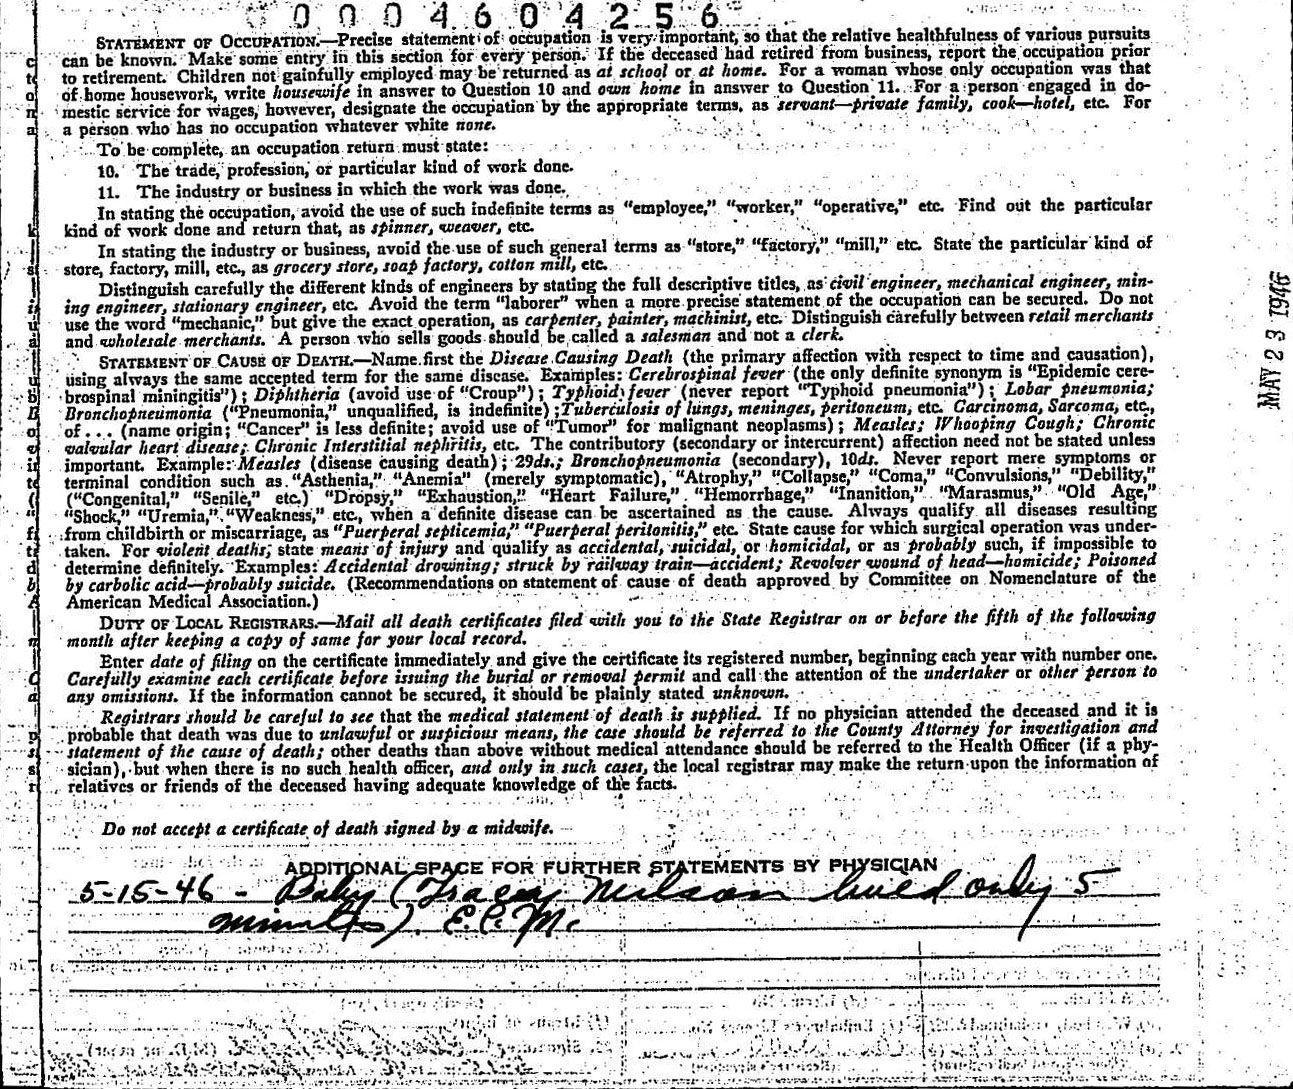 0 0 0 4 6 0 4 2 5 6
STATEMENT OF OCCUPATION.—Precise statement of occupation is very important, so that the relative healthfulness of various pursuits
can be known. Make some entry in this section for every person. If the deceased had retired from business, report the occupation prior
to retirement. Children not gainfully employed may be returned as at school or at home. For a woman whose only occupation was that
of home housework, write housewife in answer to Question 10 and own home in answer to Question 11. For a person engaged in do-
mestic service for wages, however, designate the occupation by the appropriate terms, as servant—private family, cook—hotel, etc. For
a person who has no occupation whatever white none.
To be complete, an occupation return must state:
10. The trade, profession, or particular kind of work done.
11. The industry or business in which the work was done.
In stating the occupation, avoid the use of such indefinite terms as "employee," "worker," "operative," etc. Find out the particular
kind of work done and return that, as spinner, weaver, etc.
In stating the industry or business, avoid the use of such general terms as "store," "factory," "mill," etc. State the particular kind of
store, factory, mill, etc., as grocery store, soap factory, cotton mill, etc.
Distinguish carefully the different kinds of engineers by stating the full descriptive titles, as civil engineer, mechanical engineer, min-
ing engineer, stationary engineer, etc. Avoid the term "laborer" when a more precise statement of the occupation can be secured. Do not
use the word "mechanic," but give the exact operation, as carpenter, painter, machinist, etc. Distinguish carefully between retail merchants
and wholesale merchants. A person who sells goods should be called a salesman and not a clerk.
STATEMENT OF CAUSE OF DEATH.—Name first the Disease Causing Death (the primary affection with respect to time and causation),
using always the same accepted term for the same disease. Examples: Cerebrospinal fever (the only definite synonym is "Epidemic cere-
brospinal miningitis"); Diphtheria (avoid use of "Croup"); Typhoid fever (never report "Typhoid pneumonia"); Lobar pneumonia;
Bronchopneumonia ("Pneumonia," unqualified, is indefinite); Tuberculosis of lungs, meninges, peritoneum, etc. Carcinoma, Sarcoma, etc.,
of . . . (name origin; "Cancer" is less definite; avoid use of "Tumor" for malignant neoplasms); Measles; Whooping Cough; Chronic
valvular heart disease; Chronic Interstitial nephritis, etc. The contributory (secondary or intercurrent) affection need not be stated unless
important. Example: Measles (disease causing death); 29ds.; Bronchopneumonia (secondary), 10ds. Never report mere symptoms or
terminal condition such as "Asthenia," "Anemia" (merely symptomatic), "Atrophy," "Collapse," "Coma," "Convulsions," "Debility,"
("Congenital," "Senile," etc.) "Dropsy," "Exhaustion," "Heart Failure," "Hemorrhage," "Inanition," "Marasmus," "Old Age,"
"Shock," "Uremia," "Weakness," etc., when a definite disease can be ascertained as the cause. Always qualify all diseases resulting
from childbirth or miscarriage, as "Puerperal septicemia," "Puerperal peritonitis," etc. State cause for which surgical operation was under-
taken. For violent deaths, state means of injury and qualify as accidental, suicidal, or homicidal, or as probably such, if impossible to
determine definitely. Examples: Accidental drowning; struck by railway train—accident; Revolver wound of head—homicide; Poisoned
by carbolic acid—probably suicide. (Recommendations on statement of cause of death approved by Committee on Nomenclature of the
American Medical Association.)
DUTY OF LOCAL REGISTRARS.—Mail all death certificates filed with you to the State Registrar on or before the fifth of the following
month after keeping a copy of same for your local record.
Enter date of filing on the certificate immediately and give the certificate its registered number, beginning each year with number one.
Carefully examine each certificate before issuing the burial or removal permit and call the attention of the undertaker or other person to
any omissions. If the information cannot be secured, it should be plainly stated unknown.
Registrars should be careful to see that the medical statement of death is supplied. If no physician attended the deceased and it is
probable that death was due to unlawful or suspicious means, the case should be referred to the County Attorney for investigation and
statement of the cause of death; other deaths than above without medical attendance should be referred to the Health Officer (if a phy-
sician), but when there is no such health officer, and only in such cases, the local registrar may make the return upon the information of
relatives or friends of the deceased having adequate knowledge of the facts.
Do not accept a certificate of death signed by a midwife.
ADDITIONAL SPACE FOR FURTHER STATEMENTS BY PHYSICIAN
5-15-46 - Baby (Tracey Neilson lived only 5
minutes). E. C. Mc
MAY 23 1946